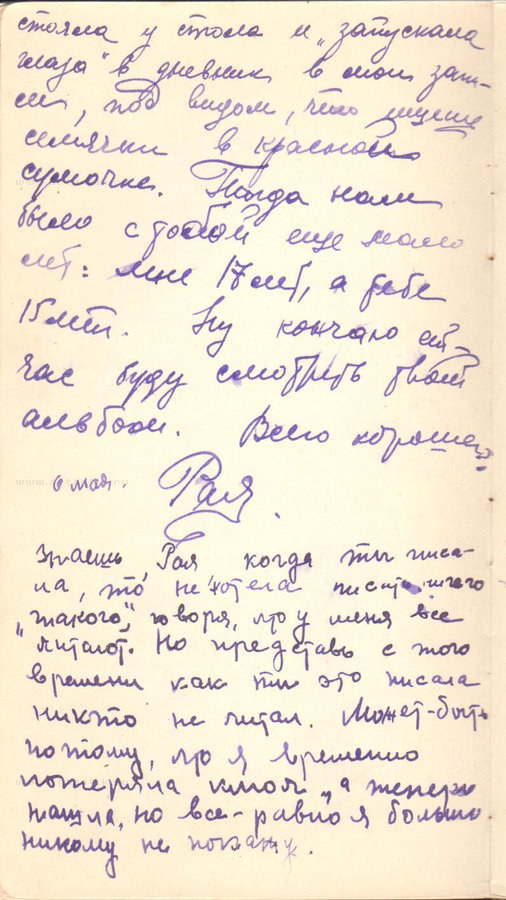 стояла у стола и „запускала
глаза" в дневник в мои запи-
си, под видом, что ищешь
семячки в красной
сумочке. Тогда нам
было с тобой еще мало
лет: мне 17 лет, а тебе
15 лет. Ну кончаю сей-
час буду смотреть твой
альбом. Всего хорошего
6 мая. Рая
Знаешь, Рая когда ты писа-
ла, то не хотела писать ничего
„такого", говоря, что у меня все
читают. Но представь с того
времени как ты это писала
никто не читал. Может-быть
потому, что я временно
потеряла ключ, а теперь
нашла, но все-равно я больше
никому не покажу.